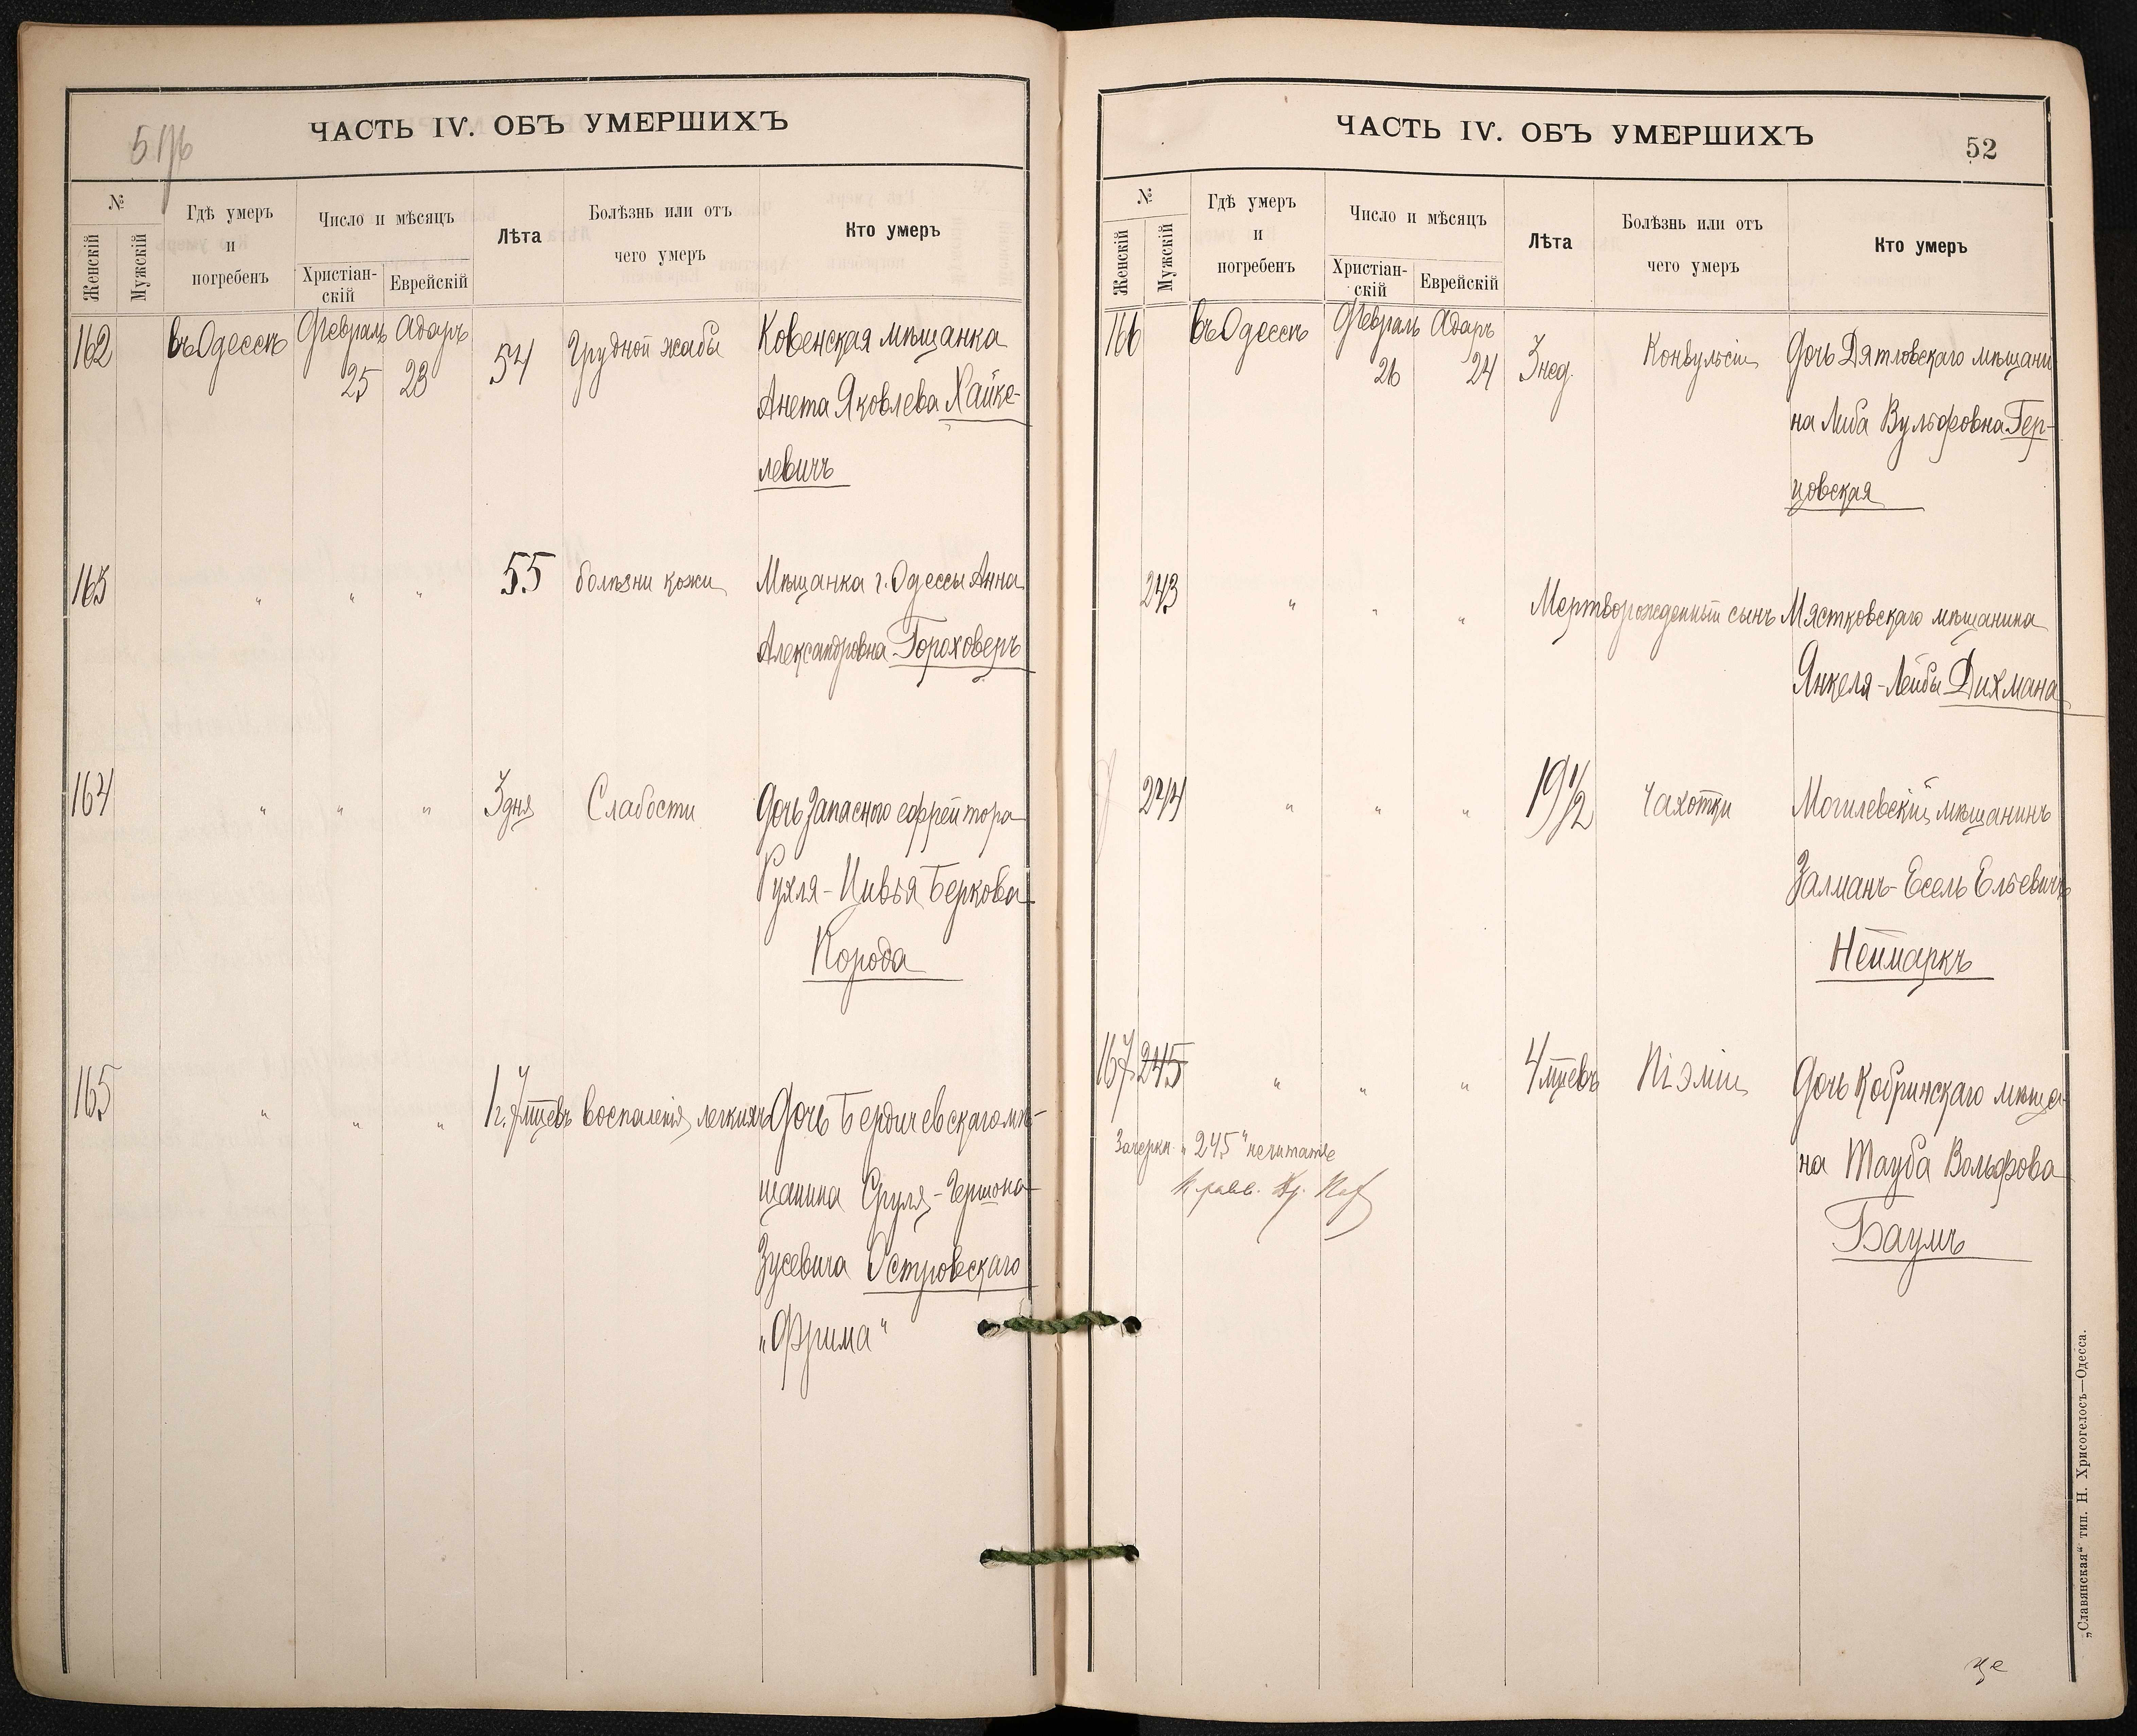 ЧАСТЬ IV. ОБЪ УМЕРШИХЪ
№
Женскій
Мужскій
Гдѣ умеръ
и
погребенъ
Число и мѣсяцъ
Христіан-
скій
Еврейскій
Лѣта
Болѣзнь или отъ
чего умеръ
Кто умеръ
162 въ Одессѣ Февраль Адаръ 54 Грудной жабы Ковенская мѣщанка
25 23
Анета Яковлева Хайке-
левичъ
163 " " " 55 болѣзни кожи Мѣщанка г. Одессы Анна
Александровна Гороховеръ
164 " " " 3 дня Слабости Дочь запаснаго ефрейтора
Рухля-Цивья Беркова
Корода
165 " " " 1 г. 7 мцевъ воспаленія легкихъ Дочь Бердичевскаго мѣ-
щанина Сруля-Гершона
Зусевича Островскаго
"Фрима"
ЧАСТЬ IV. ОБЪ УМЕРШИХЪ
52
№
Женскій
Мужскій
Гдѣ умеръ
и
погребенъ
Число и мѣсяцъ
Христіан-
скій
Еврейскій
Лѣта
Болѣзнь или отъ
чего умеръ
Кто умеръ
166 въ Одессѣ Февраль Адаръ 3 нед. Конвульсіи Дочь Дятловскаго мѣщани
26 24
на Либа Вульфовна Гер-
цовская
243 " " " Мертворожденный сынъ Мястковскаго мѣщанина
Янкеля-Лейбы Дихмана
244 " " " 19 1/2 Чахотки Могилевскій мѣщанинъ
Залманъ-Есель Ельевичъ
Неймаркъ
167 245 " " " 4 мцевъ Піэміи Дочь Кобринскаго мѣща-
на Тауба Вольфова
Баумъ
Зачеркн. "245" не читать
"Славянская" тип. Н. Хрисогелосъ—Одесса.